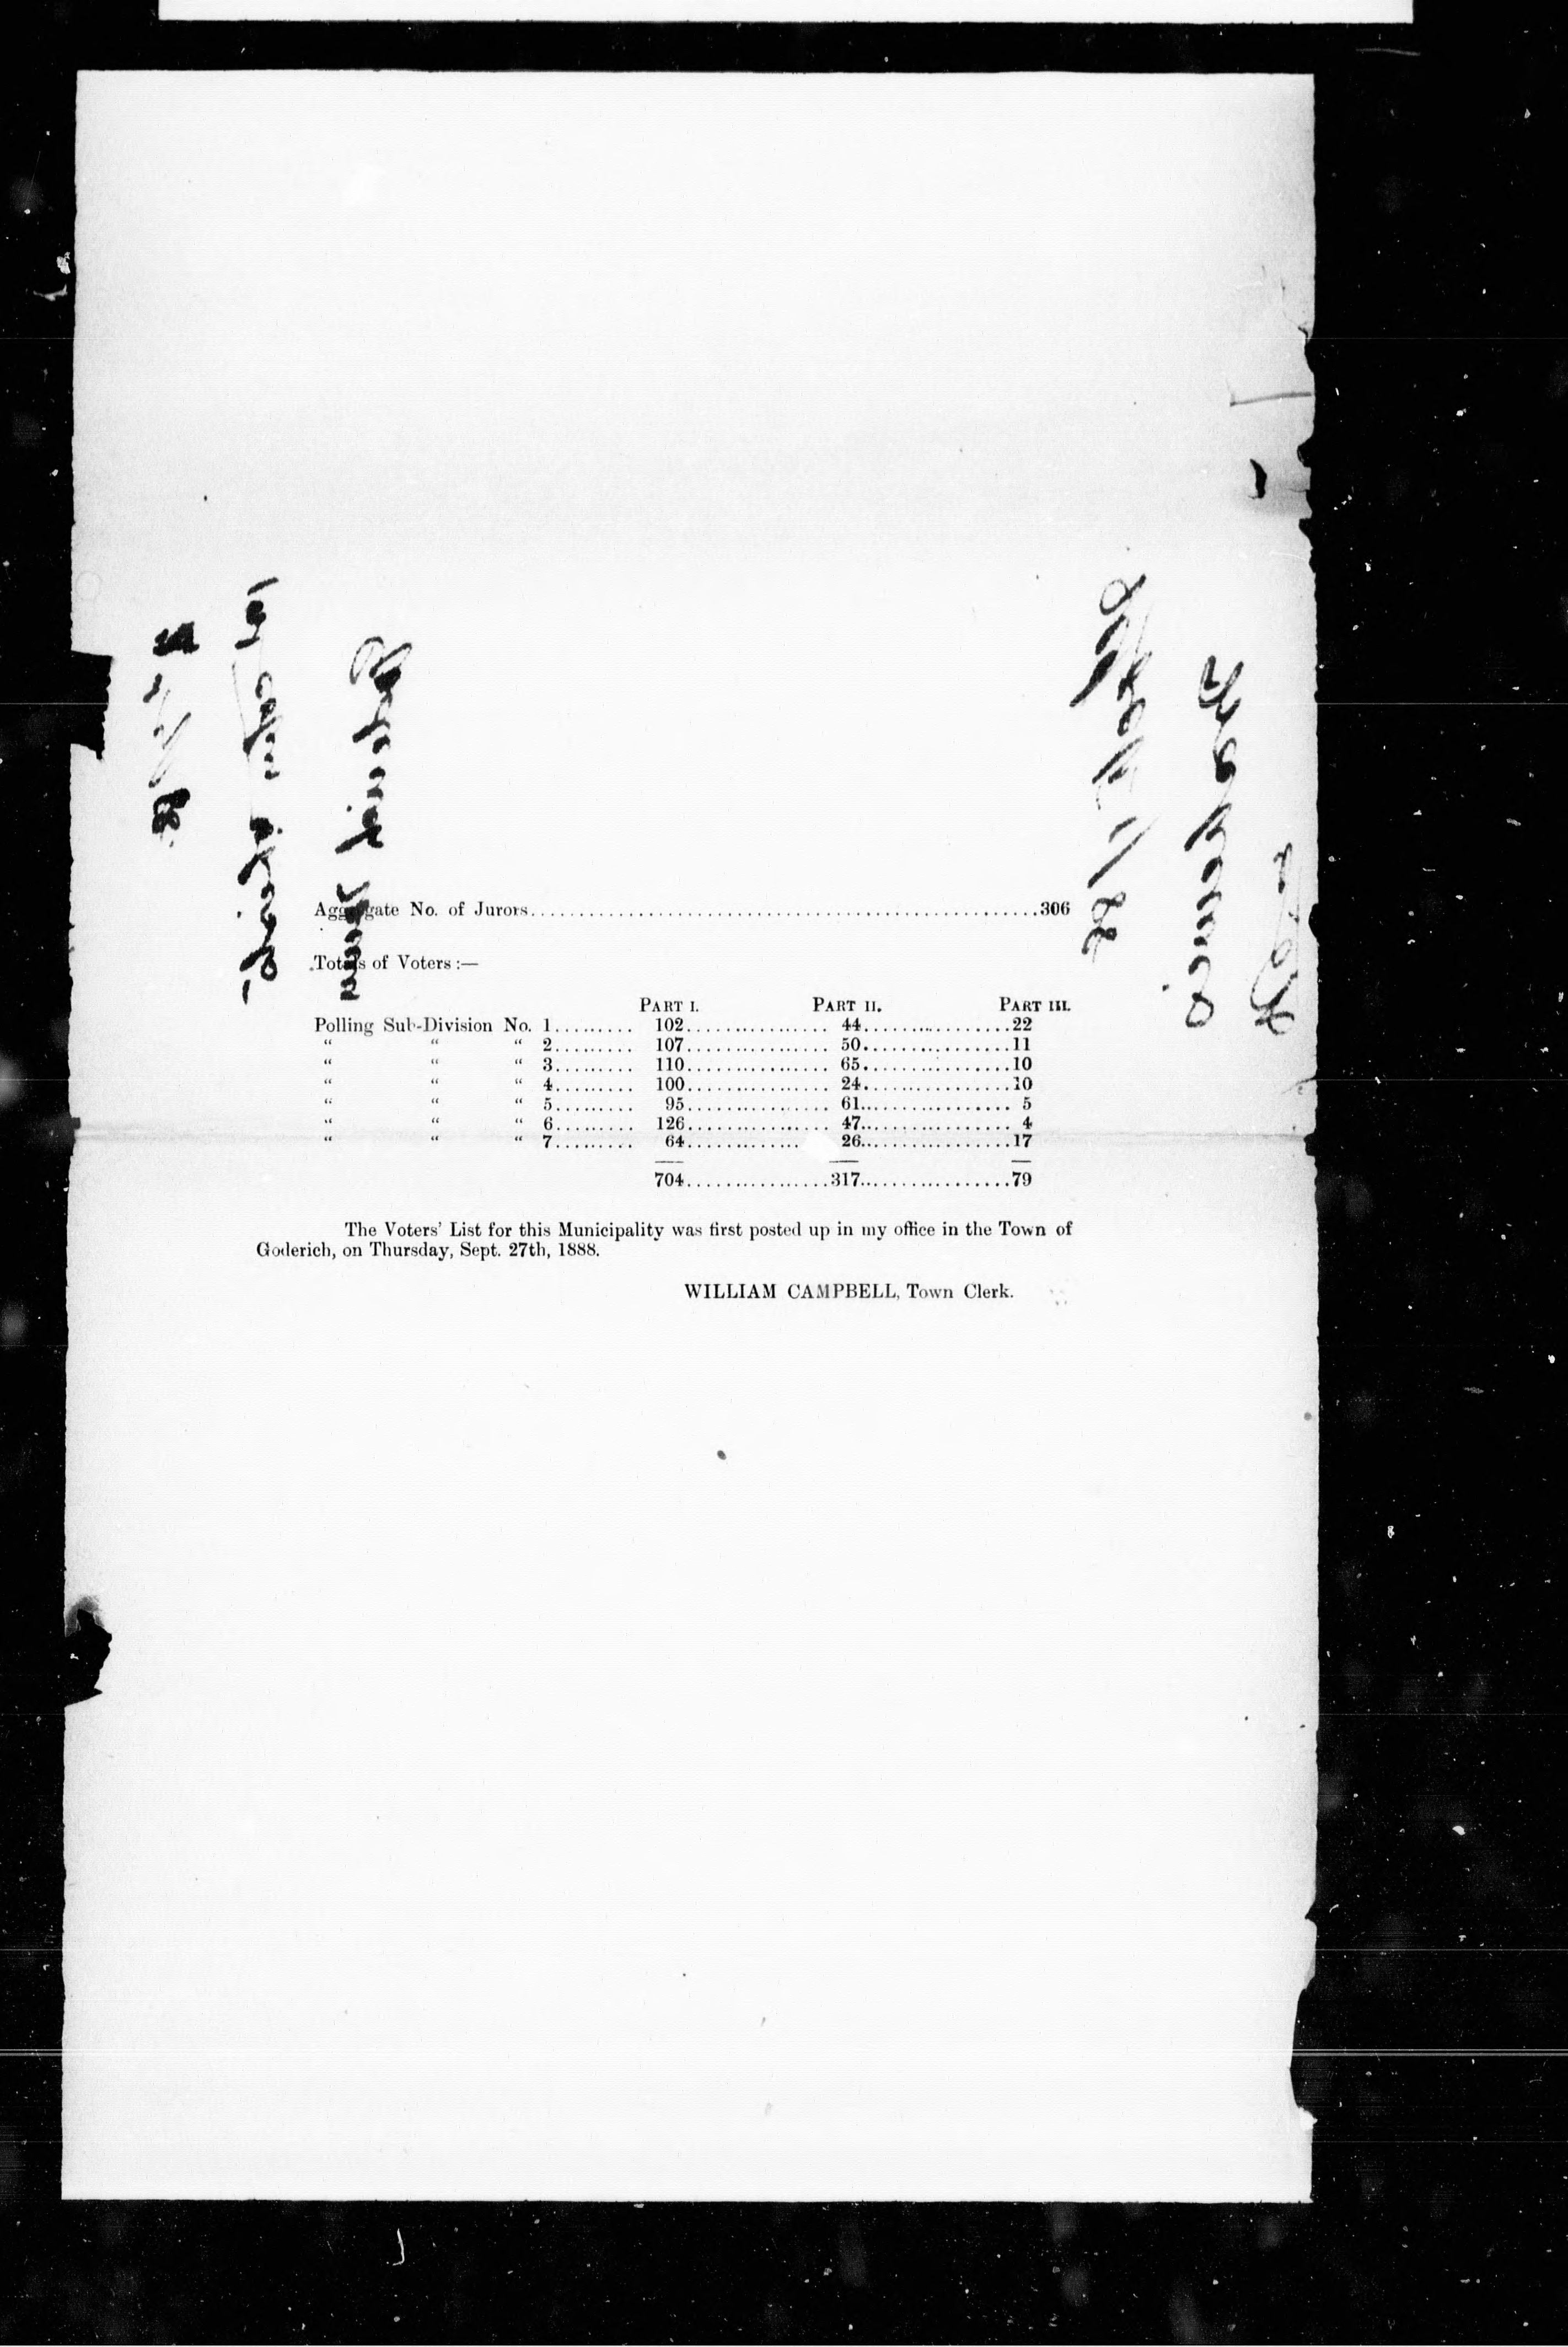 Aggregate No. of Jurors....................................................306
Totals of Voters :—
PART I. PART II. PART III.
Polling Sub-Division No. 1......... 102................ 44................22
“ “ “ 2......... 107................ 50................11
“ “ “ 3......... 110................ 65................10
“ “ “ 4......... 100................ 24................10
“ “ “ 5......... 95................ 61................ 5
“ “ “ 6......... 126................ 47................ 4
“ “ “ 7......... 64............. 26................17
704................317................79
The Voters’ List for this Municipality was first posted up in my office in the Town of
Goderich, on Thursday, Sept. 27th, 1888.
WILLIAM CAMPBELL, Town Clerk.